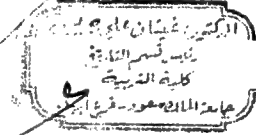 الدكتور: غيثان علي
رئيس قسم التاريخ
كلية التربية
جامعة الملك سعود - فرع أبها